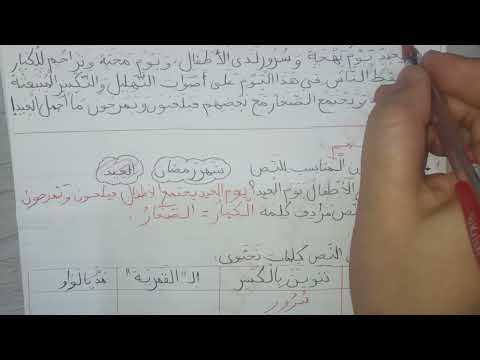 يوم بهجة و سرور لدى الأطفال، و يوم محبة و تراحم للكبار
الناس في هذا اليوم على أصوات التهليل و التكبير المنبعثة
و يجتمع الصغار مع بعضهم فيلعبون و يمرحون ما أجمل العيد!
المناسب للنص شهر رمضان العيد
الأطفال يوم العيد؟ يوم العيد يجتمع الأطفال فيلعبون و يمرحون
النص مرادف كلمة الكبار = الصغار
النص كلمات تحتوي:
تنوين بالكسر الـ "القمرية" مد بالواو
سرور